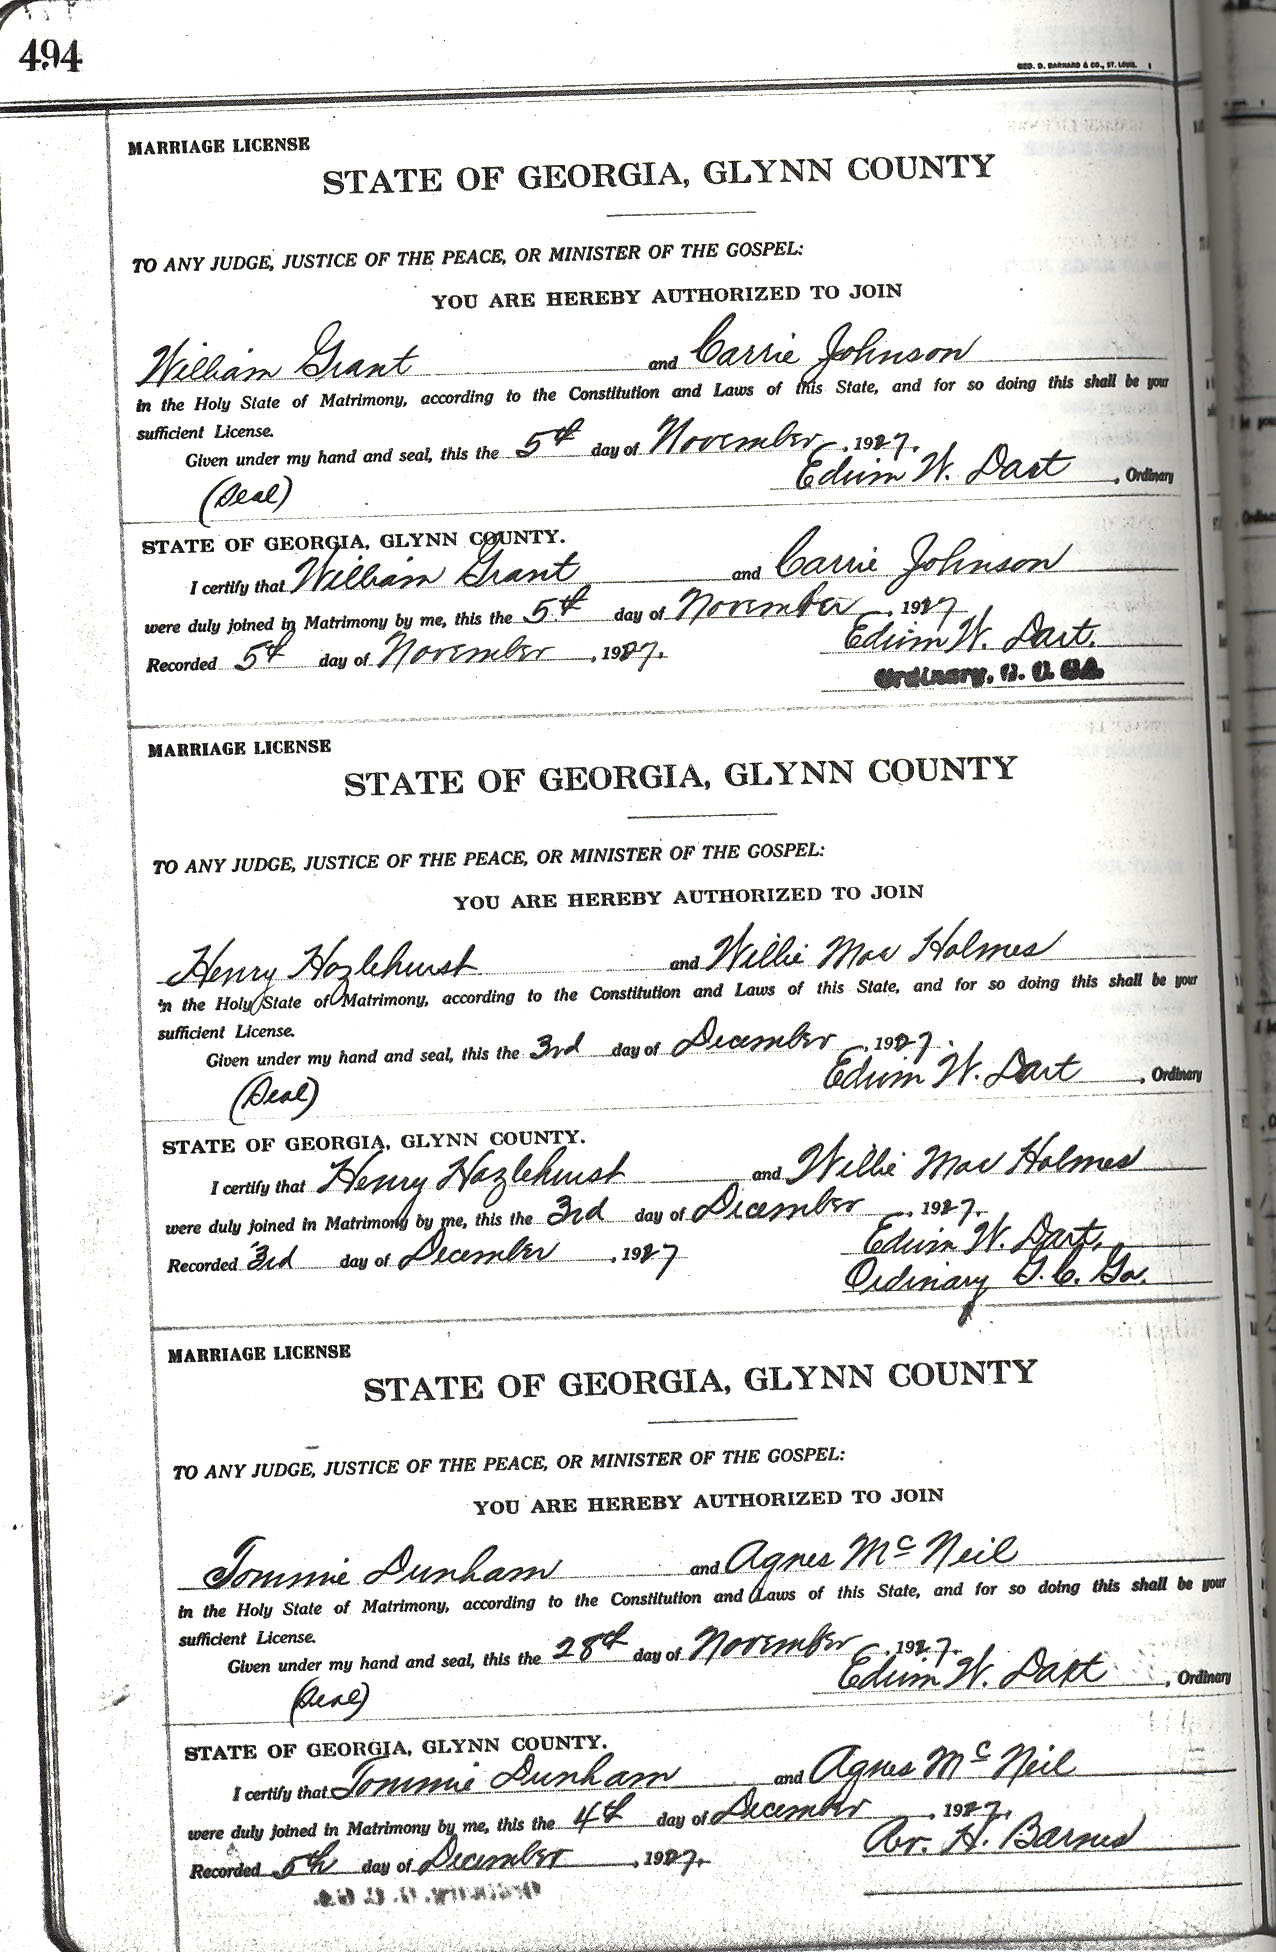 494
GEO. D. BARNARD & CO., ST. LOUIS.
MARRIAGE LICENSE
STATE OF GEORGIA, GLYNN COUNTY
TO ANY JUDGE, JUSTICE OF THE PEACE, OR MINISTER OF THE GOSPEL:
YOU ARE HEREBY AUTHORIZED TO JOIN
William Grant and Carrie Johnson
in the Holy State of Matrimony, according to the Constitution and Laws of this State, and for so doing this shall be your
sufficient License.
Given under my hand and seal, this the 5th day of November, 1927.
(Seal) Edwin W. Dart, Ordinary
STATE OF GEORGIA, GLYNN COUNTY.
I certify that William Grant and Carrie Johnson
were duly joined in Matrimony by me, this the 5th day of November, 1927
Recorded 5th day of November, 1927. Edwin W. Dart.
Ordinary, G. C. Ga.
MARRIAGE LICENSE
STATE OF GEORGIA, GLYNN COUNTY
TO ANY JUDGE, JUSTICE OF THE PEACE, OR MINISTER OF THE GOSPEL:
YOU ARE HEREBY AUTHORIZED TO JOIN
Henry Hazlehurst and Willie Mae Holmes
in the Holy State of Matrimony, according to the Constitution and Laws of this State, and for so doing this shall be your
sufficient License.
Given under my hand and seal, this the 3rd day of December, 1927.
(Seal) Edwin W. Dart, Ordinary
STATE OF GEORGIA, GLYNN COUNTY.
I certify that Henry Hazlehurst and Willie Mae Holmes
were duly joined in Matrimony by me, this the 3rd day of December, 1927.
Recorded 3rd day of December, 1927 Edwin W. Dart,
Ordinary G. C. Ga.
MARRIAGE LICENSE
STATE OF GEORGIA, GLYNN COUNTY
TO ANY JUDGE, JUSTICE OF THE PEACE, OR MINISTER OF THE GOSPEL:
YOU ARE HEREBY AUTHORIZED TO JOIN
Tommie Dunham and Agnes McNeil
in the Holy State of Matrimony, according to the Constitution and Laws of this State, and for so doing this shall be your
sufficient License.
Given under my hand and seal, this the 28th day of November, 1927.
(Seal) Edwin W. Dart, Ordinary
STATE OF GEORGIA, GLYNN COUNTY.
I certify that Tommie Dunham and Agnes McNeil
were duly joined in Matrimony by me, this the 4th day of December, 1927.
Recorded 5th day of December, 1927. H. Barnes